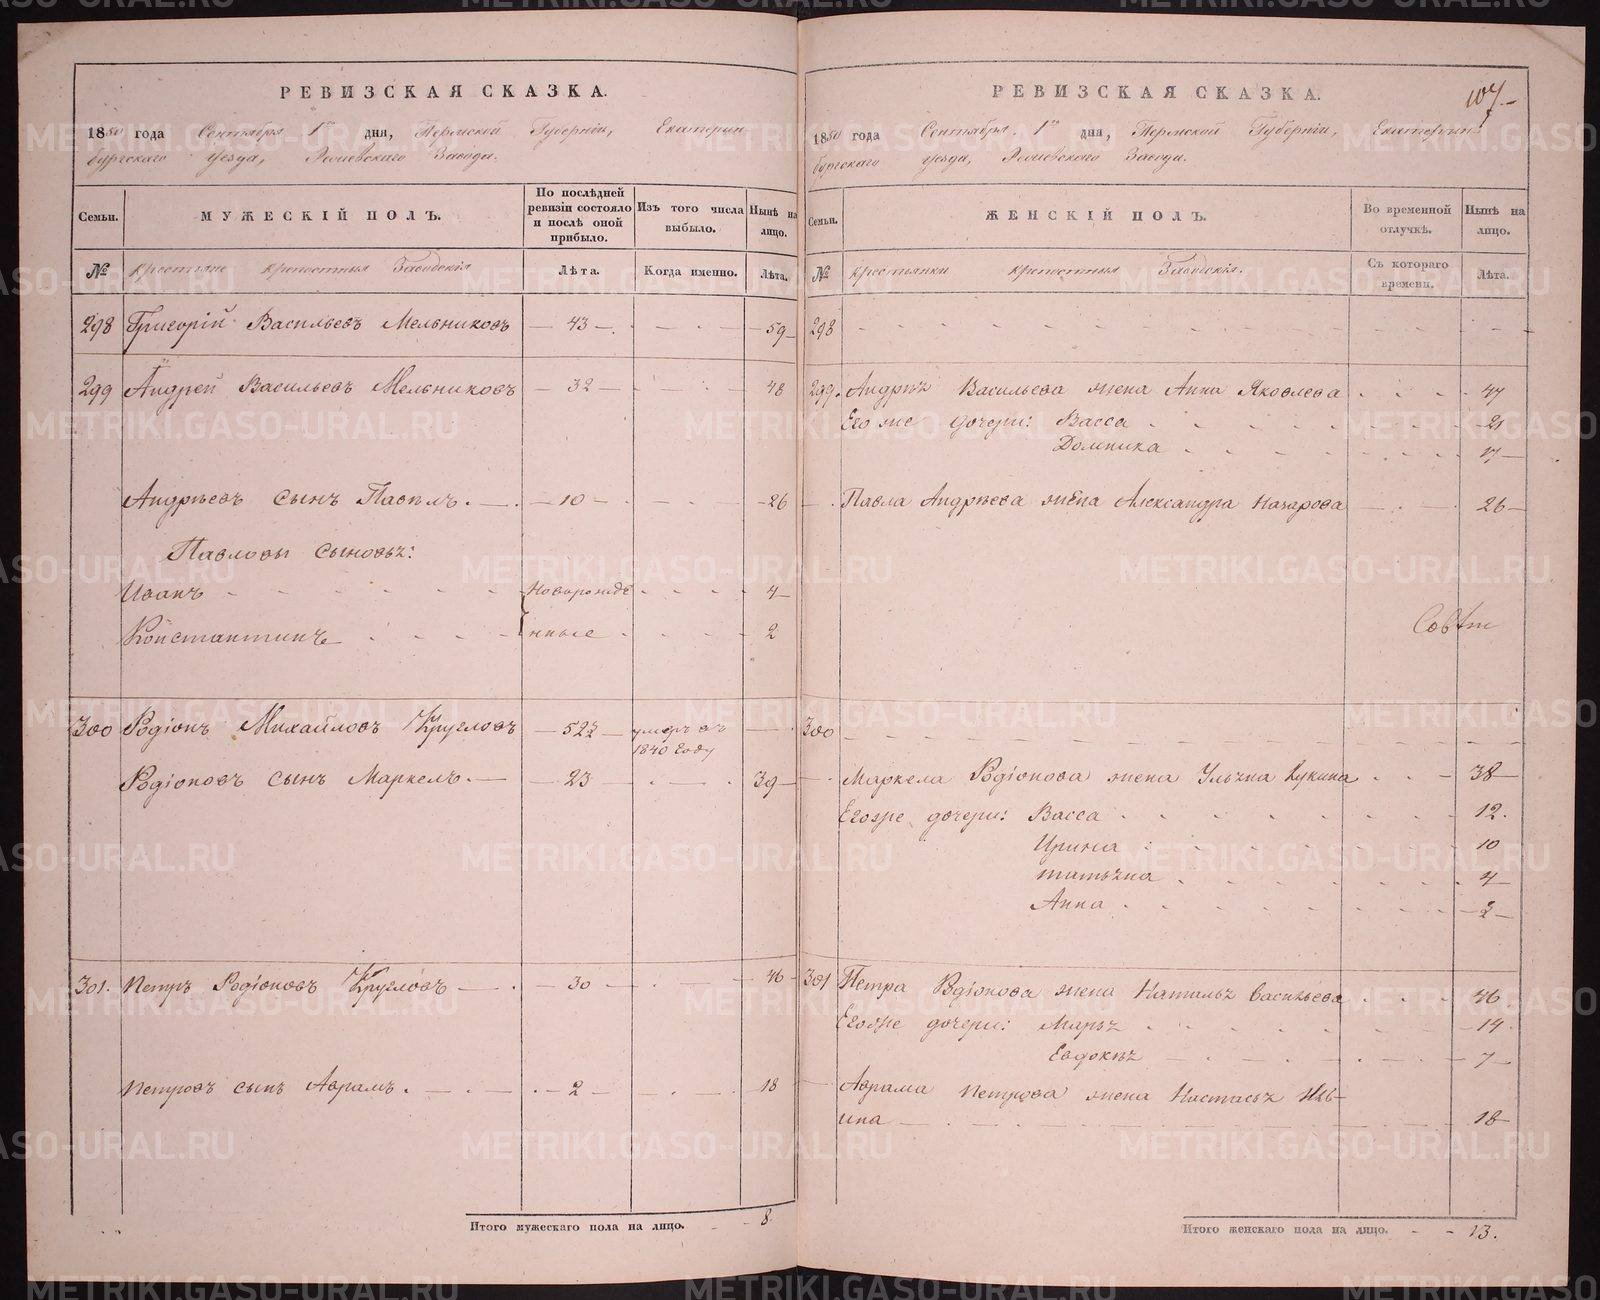 РЕВИЗСКАЯ СКАЗКА.
1850 года Сентября 1го дня, Пермской Губерніи, Екатерин
бургскаго уезда, Завода.
Семьи.
МУЖЕСКІЙ ПОЛЪ.
По послѣдней ревизіи состояло и послѣ оной прибыло.
Изъ того числа выбыло.
Нынѣ на лицо.
№
крестьяне крепостныя Заводскія
Лѣта.
Когда именно.
Лѣта.
298 Григорій Васильевъ Мельниковъ — 43 — 59
299 Андрей Васильевъ Мельниковъ — 32 — 48
Андрѣевъ сынъ Павелъ. — 10 — 26
Павловы сыновьѣ:
Иванъ Новорожде 4
Константинъ нные 2
300 Родіонъ Михайловъ Кругловъ — 52 умеръ въ
1840 году
Родіоновъ сынъ Маркелъ. — 23 39
301. Петръ Родіоновъ Кругловъ — 30 46
Петровъ сынъ Аврамъ. 2 18
Итого мужескаго пола на лицо. 8.
РЕВИЗСКАЯ СКАЗКА.
107
1850 года Сентября 1го дня, Пермской Губерніи, Екатерин
бургскаго уезда, Завода.
Семьи.
ЖЕНСКІЙ ПОЛЪ.
Во временной отлучкѣ.
Нынѣ на лицо.
№
крестьянки крепостныя Заводскія.
Съ котораго времени.
Лѣта.
298
299. Андрѣѣ Васильева жена Анна Яковлева 47
Его же дочери: Васса 21
Домника 17
Павла Андрѣева жена Александра Назарова 26
300
Маркела Родіонова жена Ульѣна Лукина 38
Егоже дочери: Васса 12.
Ирина 10
татьѣна 4
Анна 2
301 Петра Родіонова жена Натальѣ Васильева 46
Егоже дочери: Марьѣ 14
Евдокѣѣ 7
Аврама Петрова жена Настасьѣ
ина 18
Итого женскаго пола на лицо. 13.
METRIKI.GASO-URAL.RU